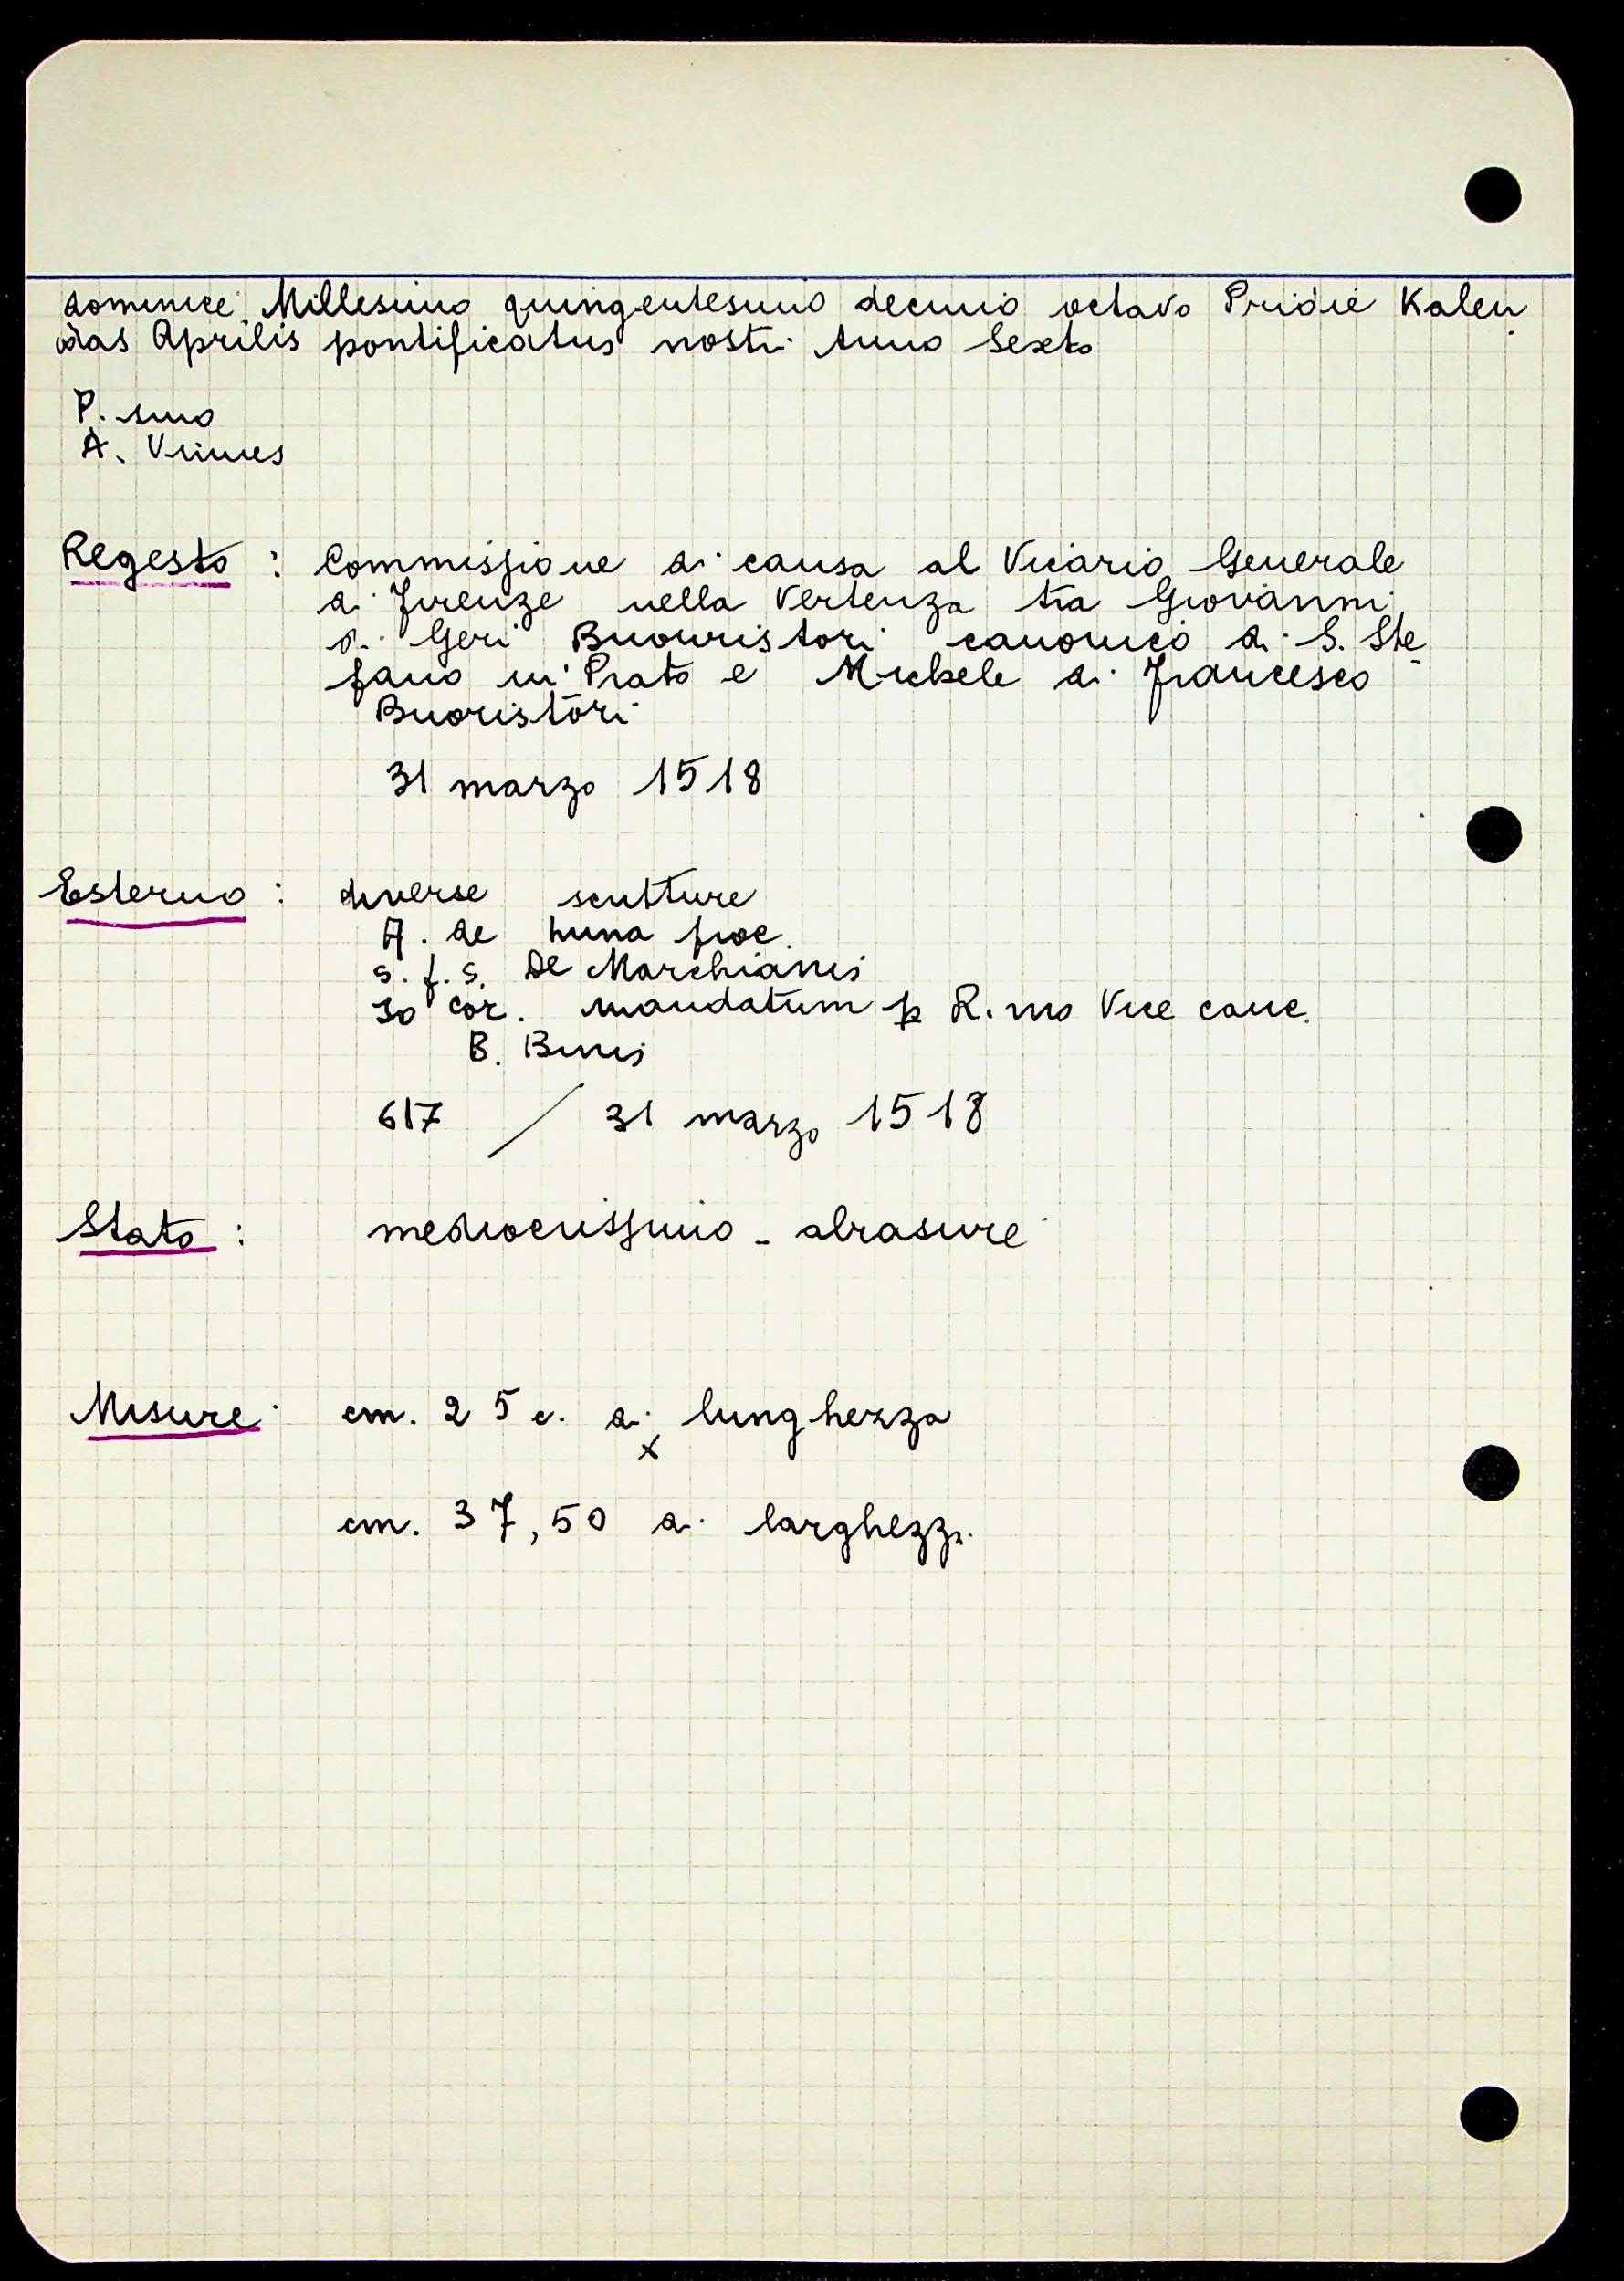 dominice Millesimo quingentesimo decimo octavo Pridie Kalen
das Aprilis pontificatus nostri Anno Sexto
P. suno
A. Vrives
Regesto : Commissione di causa al Vicario Generale
di Firenze nella vertenza tra Giovanni
di Geri Buonristori canonico di S. Ste
fano in Prato e Michele di Francesco
Buoristori
31 marzo 1518
Esterno : diverse scritture
A. de huna proc.
s. f. s. De Marchianis
Jo cor. mandatum p R.mo Vice canc.
B. Binis
617 / 31 marzo 1518
Stato : mediocrissimo - abrasure
Misure: cm. 25 c. di lunghezza
x
cm. 37,50 di larghezza